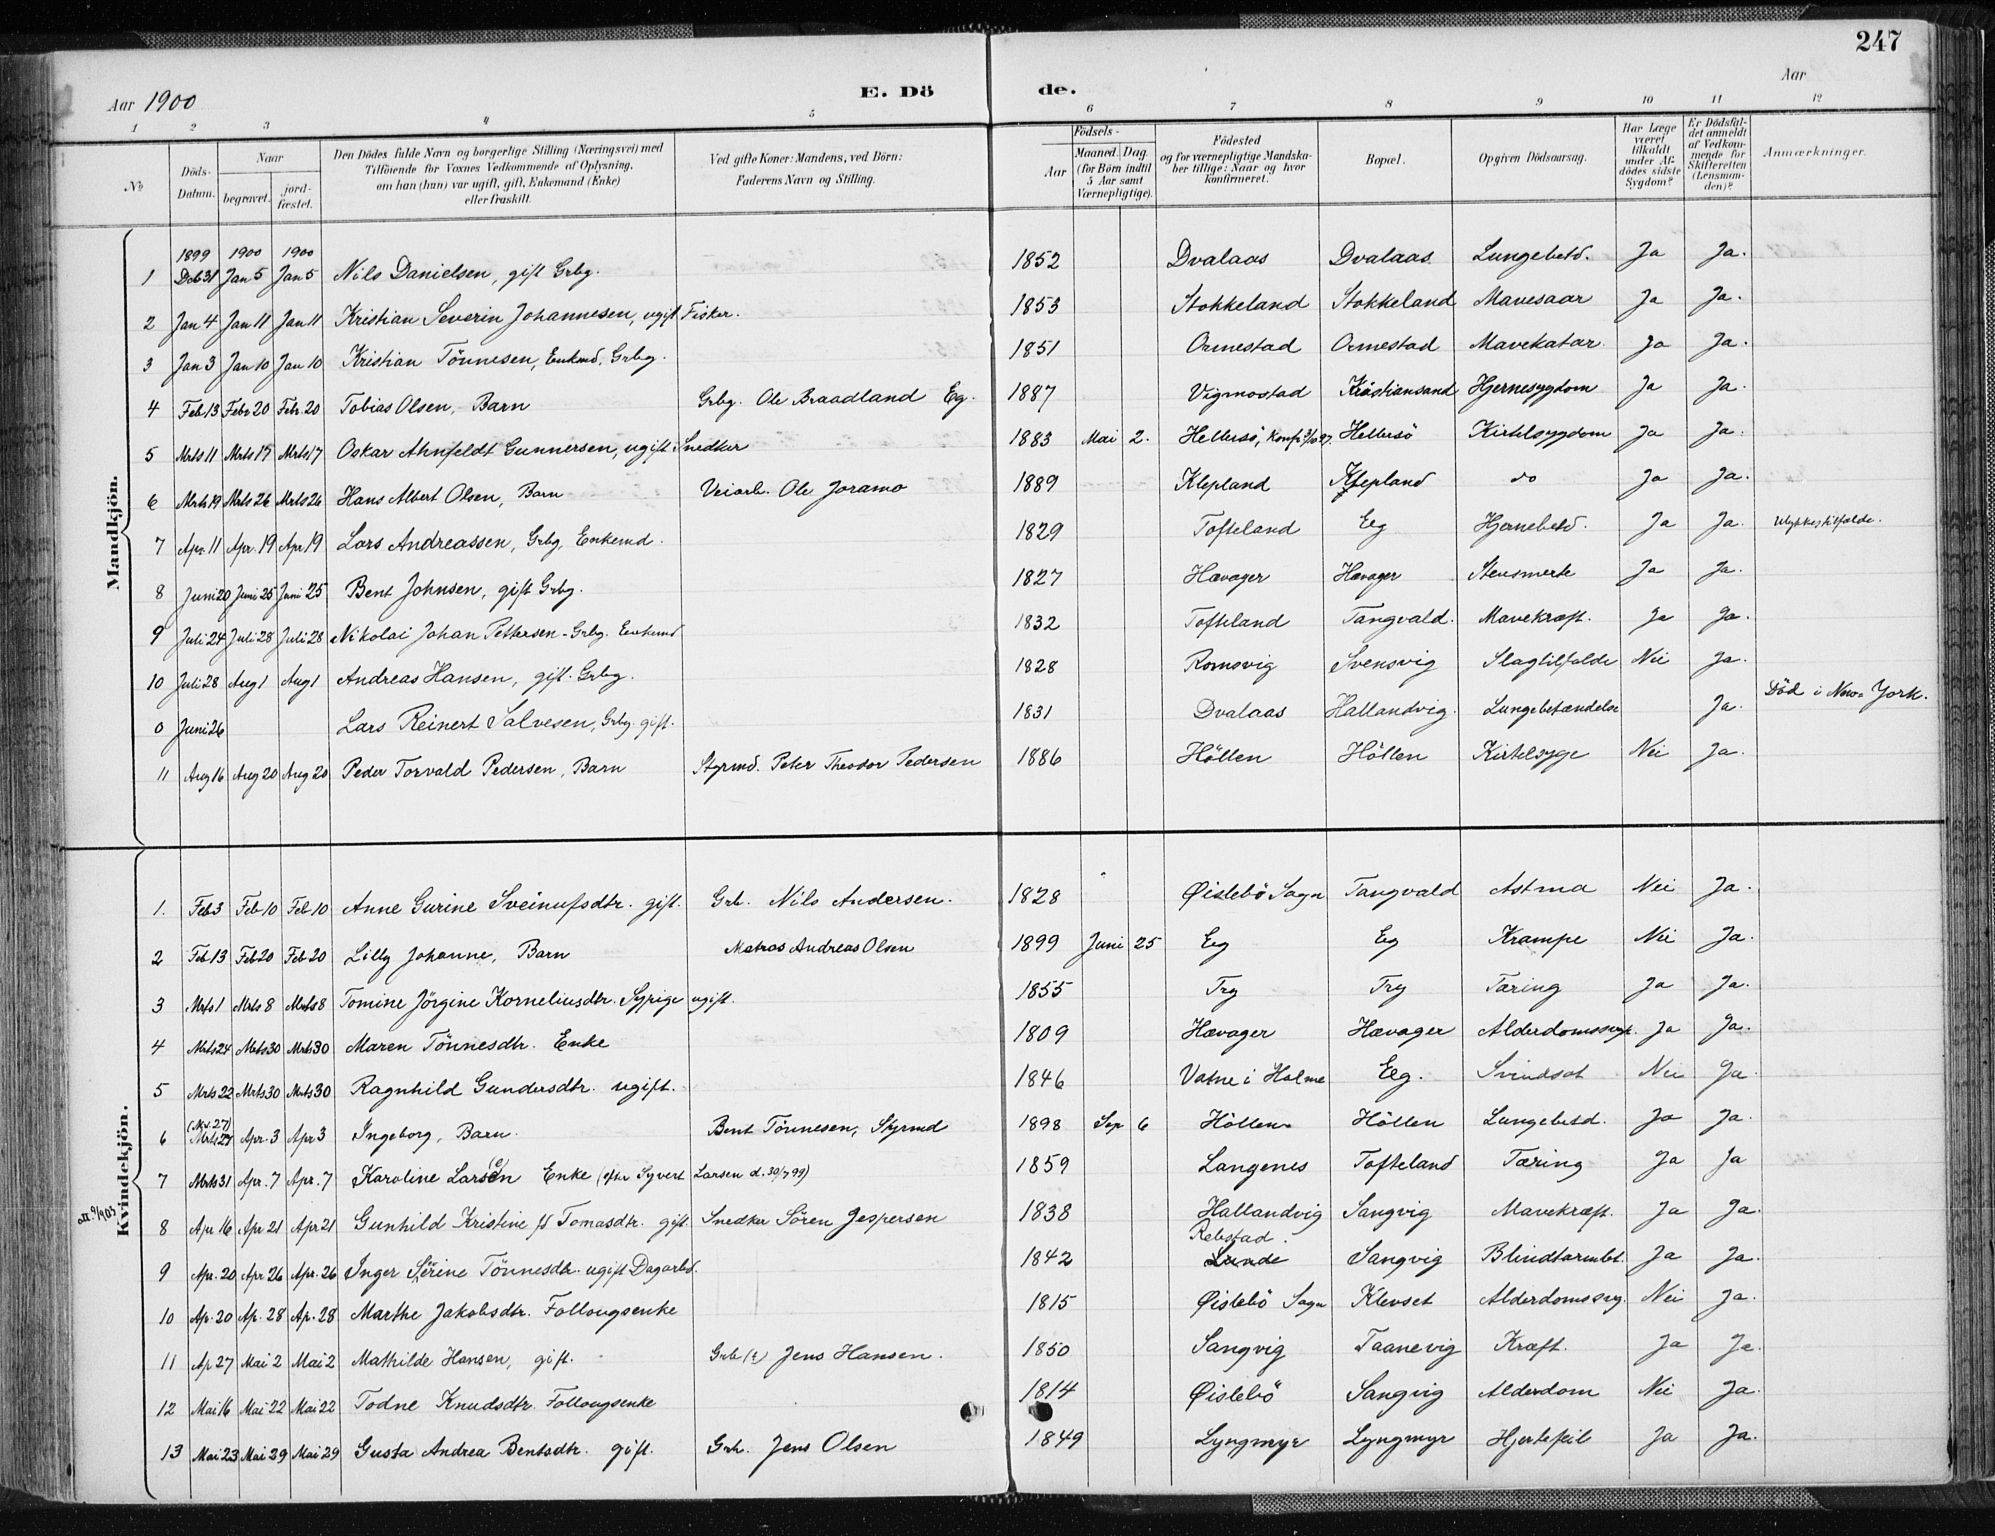 247
Aar 1900
E. Dö
de.
Aar
1 2 3 4 5 6 7 8 9 10 11 12
No
Döds-Datum.
Naar
begravet.
jord-fæstet.
Den Dödes fulde Navn og borgerlige Stilling (Næringsvei) med
Tilföiende for Voxnes Vedkommende af Oplysning,
om han (hun) var ugift, gift, Enkemand (Enke)
eller fraskilt.
Ved gifte Koner: Mandens, ved Börn:
Faderens Navn og Stilling.
Födsels-
Aar
Maaned. Dag
(for Börn indtil 5 Aar samt Værnepligtige).
Födested
og for værnepligtige Mandska-
ber tillige: Naar og hvor
konfirmeret.
Bopæl.
Opgiven Dödsaarsag.
Har Læge været tilkaldt under Af-dödes sidste Sygdom?
Er Dödsfal-det anmeldt af Vedkom-mende for Skifteretten (Lensman-den)?
Anmærkninger.
Mandkjön.
1899 1900 1900
1 Deb 31 Jan 5 Jan 5 Nils Danielsen, gift Grbg. 1852 Dvalaas Dvalaas Lungebetd. Ja Ja.
2 Jan 4 Jan 11 Jan 11 Kristian Severin Johannesen, ugift Fisker. 1853 Stokkeland Stokkeland Mavesaar Ja Ja.
3 Jan 3 Jan 10 Jan 10 Kristian Tönnesen, Enkmd. Grbg. 1851 Ormestad Ormestad Mavekatar. Ja Ja.
4 Feb. 13 Febr 20 Febr. 20 Tobias Olsen, Barn Grbg. Ole Braadland Eg. 1887 Vigmostad Kristiansand Hjernesygdom Ja Ja.
5 Mrts 11 Mrts 17 Mrts 17 Oskar Ahnfeldt Gunnersen, ugift Snedker 1883 Mai 2. Hellersö, Konf. Hellersö Kirtelsygdom Ja Ja.
6 Mrts 19 Mrts 26 Mrts 26 Hans Albert Olsen, Barn Veiarb. Ole Joramo 1889 Klepland Klepland do Ja Ja.
7 Apr. 11 Apr. 19 Apr 19 Lars Andreassen, Grbg, Enkemd. 1829 Tofteland Eeg Hjernebetd. Ja Ja. Ulykkestilfælde.
8 Juni 20 Juni 25 Juni 25 Bent Johnsen, gift Grbg. 1827 Hævager Hævager Stensmerte Ja Ja.
9 Juli 24 Juli 28 Juli 28 Nikolai Johan Pettersen - Grbg. Enkemd 1832 Tofteland Tangvald. Mavekræft. Ja Ja.
10 Juli 28 Aug 1 Aug 1 Andreas Hansen, gift. Grbg. 1828 Romsvig Svensvig Slagtilfælde Nei Ja.
0 Juni 26 Lars Reinert Salvesen, Grbg. gift. 1831 Dvalaas Hallandvig. Lungebetændelse Ja. Död i New-York.
11 Aug 16 Aug 20 Aug 20 Peder Torvald Pedersen, Barn Styrmd. Peter Theodor Pedersen 1886 Höllen Höllen Kirtelsyge Nei Ja.
Kvindekjön.
1. Feb 3 Feb 10 Feb 10 Anne Gurine Sveinufsdtr. gift. Grb. Nils Andersen. 1828 Øislebö Sogn Tangvald Astma Nei Ja.
2 Feb 13 Feb 20 Feb 20 Lilly Johanne, Barn Matros Andreas Olsen 1899 Juni 25 Eg Eg Krampe Nei Ja.
3 Mrts 1 Mrts 8 Mrts 8 Tomine Jörgine Korneliusdtr. Sypige ugift. 1855 Try Try Tæring Ja Ja.
4 Mrts 24 Mrts 30 Mrts 30 Maren Tönnesdtr. Enke 1809 Hævager Hævager Alderdomssvagh. Ja Ja.
5 Mrts 22 Mrts 30 Mrts 30 Ragnhild Gundersdtr. ugift. 1846 Vatne i Holme Eeg. Svindsot Nei Ja.
6 (Mrts. 27) Mrts 24 Apr. 3 Apr 3 Ingeborg, Barn. Bent Tönnesen, Styrmd 1898 Sep 6 Höllen Höllen Lungebetd. Ja Ja.
7 Mrts 31 Apr. 7 Apr. 7 Karoline Larsen (e) Enke (efter Syvert Larsen d. 30/7 99) 1859 Langenes Tofteland Tæring Ja Ja
att. 9/1903
8 Apr 16 Apr 21 Apr 21 Gunhild Kristine Tomasdtr. gift. Snedker Sören Jespersen 1838 Hallandvig Sangvig Mavekræft. Ja Ja.
9 Apr. 20 Apr 26 Apr. 26 Inger Serine Tönnesdtr. ugift Dagarbd. 1842 Rebstad. Lunde Sangvig Blindtarmbet. Ja Ja.
10 Ap. 20 Ap. 28 Ap. 28 Marthe Jakobsdtr. Follougsenke 1815 Øislebö Sogn Klevset Alderdomssvg. Nei Ja.
11 Ap 27 Mai 2 Mai 2 Mathilde Hansen, gift. Grb (?) Jens Hansen. 1850 Sangvig Taanevig Kræft. Ja Ja.
12 Mai 16 Mai 22 Mai 22 Todne Knudsdtr. Follougsenke 1814 Øislebö Sangvig Alderdom Nei Ja.
13 Mai 23 Mai 29 Mai 29 Gusta Andrea Bentsdtr. gift. Grb. Jens Olsen 1849 Lyngmyr Lyngmyr Hjertefeil Ja Ja.